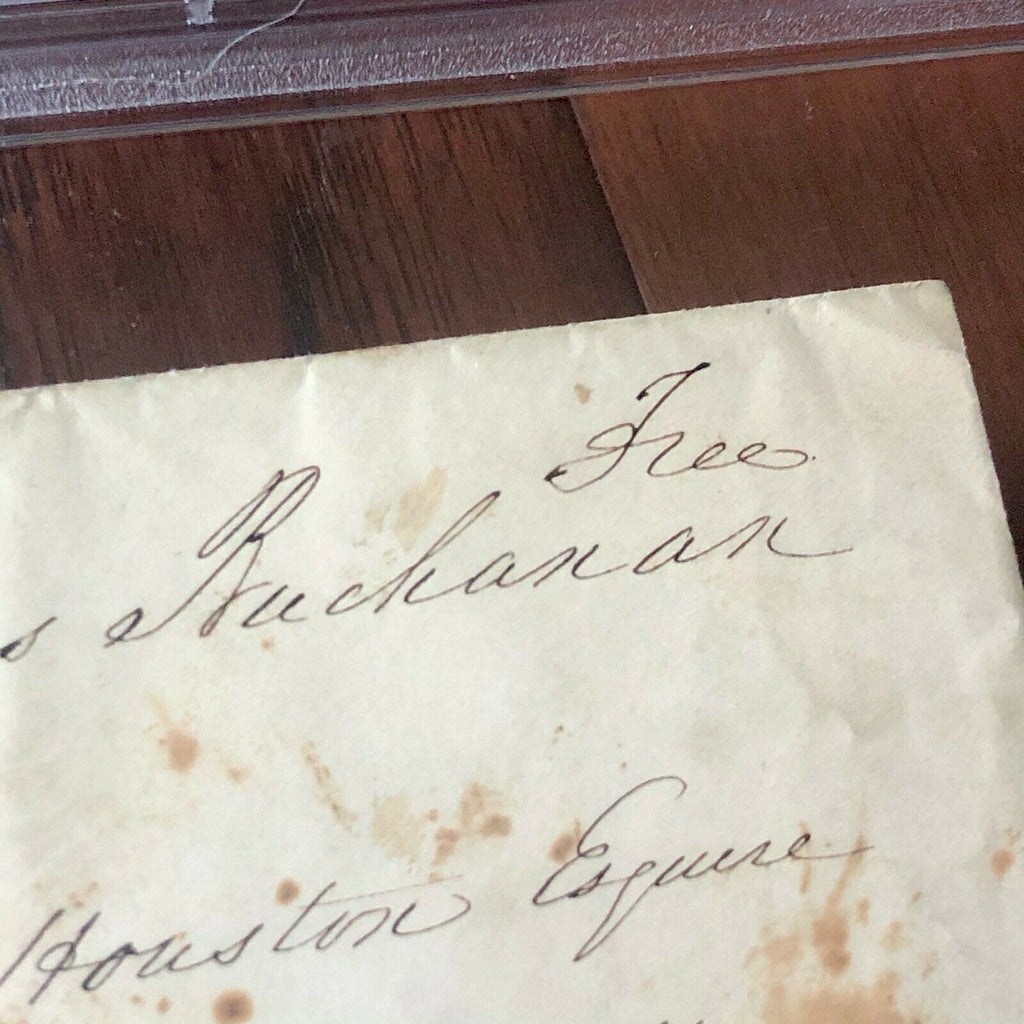 Free
s Buchanan
Houston Esquire